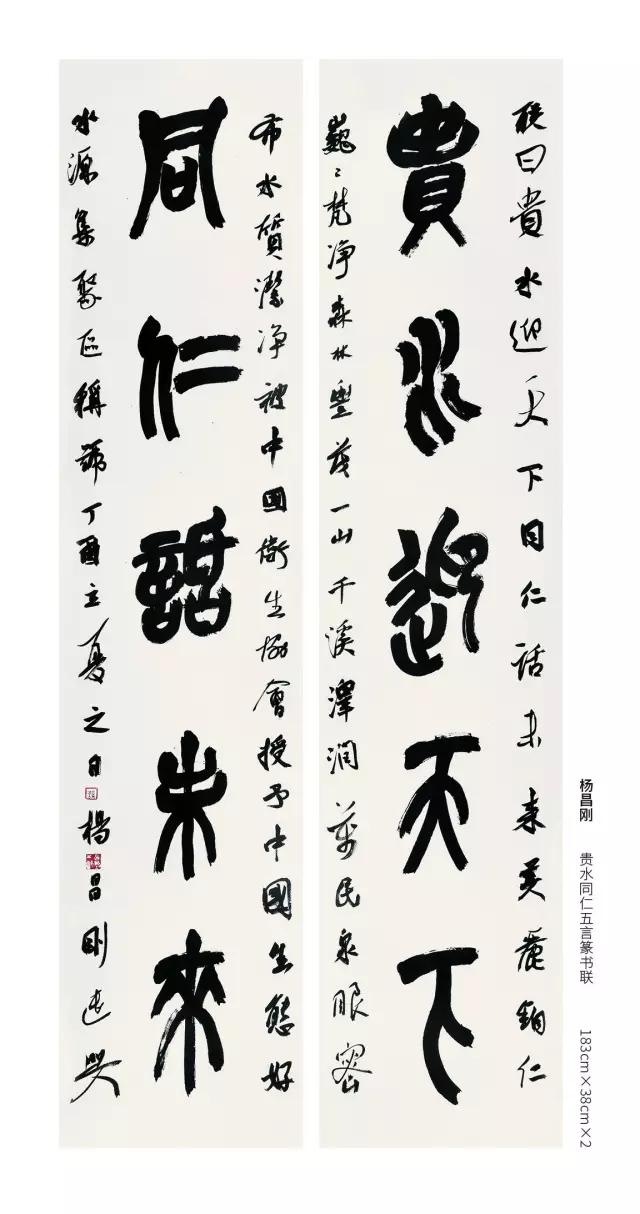 貴水迎天下
联曰貴水迎天下同仁話未来美麗銅仁
巍〻梵净森林豐茂一山千溪澤润萬民泉眼密
同仁話未來
布水質潔净被中國衛生協會授予中國生態好
水源集聚区稱號丁酉立夏之日楊昌剛
杨昌刚 贵水同仁五言篆书联 183cm×38cm×2